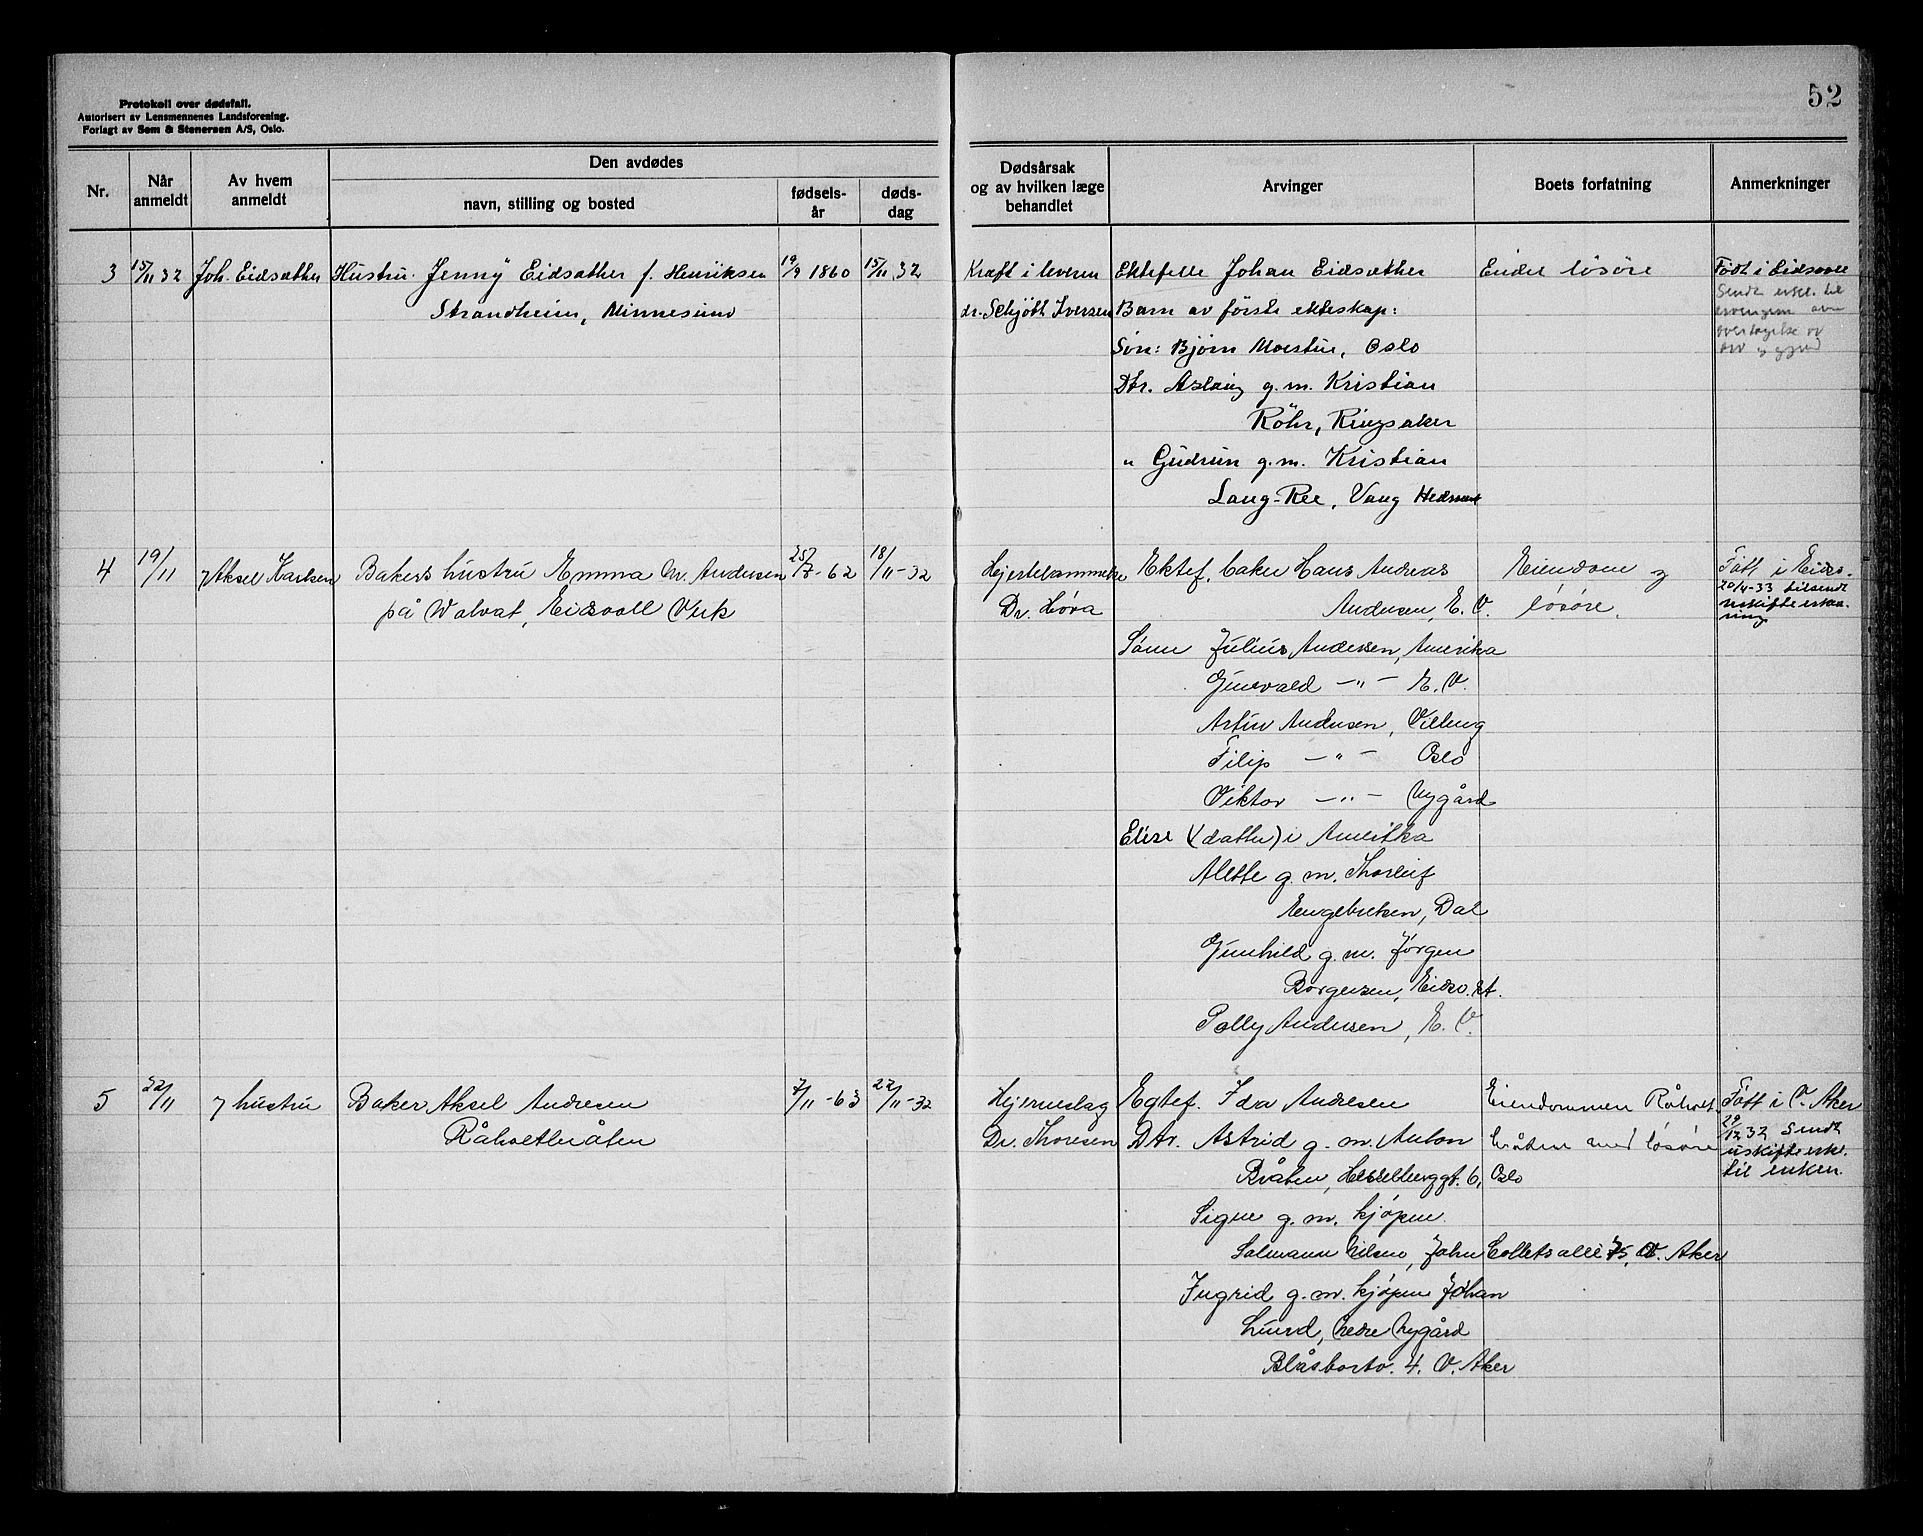 Protokoll over dødsfall.
Autorisert av Lensmennenes Landsforening.
Forlagt av Sem & Stenersen A/S, Oslo.
52
Nr.
Når anmeldt
Av hvem anmeldt
Den avdødes
navn, stilling og bosted
fødsels-år
døds-dag
Dødsårsak og av hvilken læge behandlet
Arvinger
Boets forfatning
Anmerkninger
3 15/11 32 Joh. Eidsæther Hustru Jenny Eidsæther f. Henriksen 19/9 1860 15/11 32
Strandheim, Minnesund
Kræft i leveren
dr. Schjøth Iversen
Ektefelle Johan Eidsæther
Barn av første ekteskap:
Søn: Bjørn Moestue, Oslo
Dtr. Aslaug g.m. Kristian
Röhr, Ringsaker
" Gudrun g.m. Kristian
Lang-Ree, Vang Hedmark
Endel løsøre
Født i Eidsvoll
Sendt erkl. til
arvingene om
overtagelse av
arv og gjeld
4 19/11 Aksel Karlsen Bakers hustru Emma M. Andersen 25/7-62 18/11-32
på Volvat, Eidsvoll Verk
Hjertelammelse
Dr. Høva
Ektef. baker Hans Andreas
Andersen, E. V.
Sønn Julius Andersen, Amerika
Gunvald —"— E. V.
Artur Andersen, Vilberg
Filip —"— Oslo
Viktor —"— Nygård
Elise (datter) i Amerika
Alette g. m. Thorleif
Engebretsen, Dal
Gunhild g. m. Jørgen
Borgersen, Eidsv. st.
Polly Andersen, E. V.
Eiendom og
løsøre.
Født i Eidsv.
20/4-33 tilsendt
uskifteerklæ-
ring
5 22/11 hustru Baker Aksel Andresen 7/11-63 22/11-32
Råholtbråten
Hjerneslag
Dr. Thoresen
Egtef. Ida Andresen
Dtr. Astrid g. m. Anton
Bråten, Hesselberggt. 6, Oslo
Signe g. m. kjøpm.
Salmann Nilsen, John Colletsalle 75, V. Aker
Ingrid g. m. kjøpm Johan
Lund, Nedre Nygård
Blåsbortv. 4. V. Aker
Eiendommen Råholt-
bråten med løsøre
Født i V. Aker
29/12 32 sendt
uskifteerkl.
til enken.